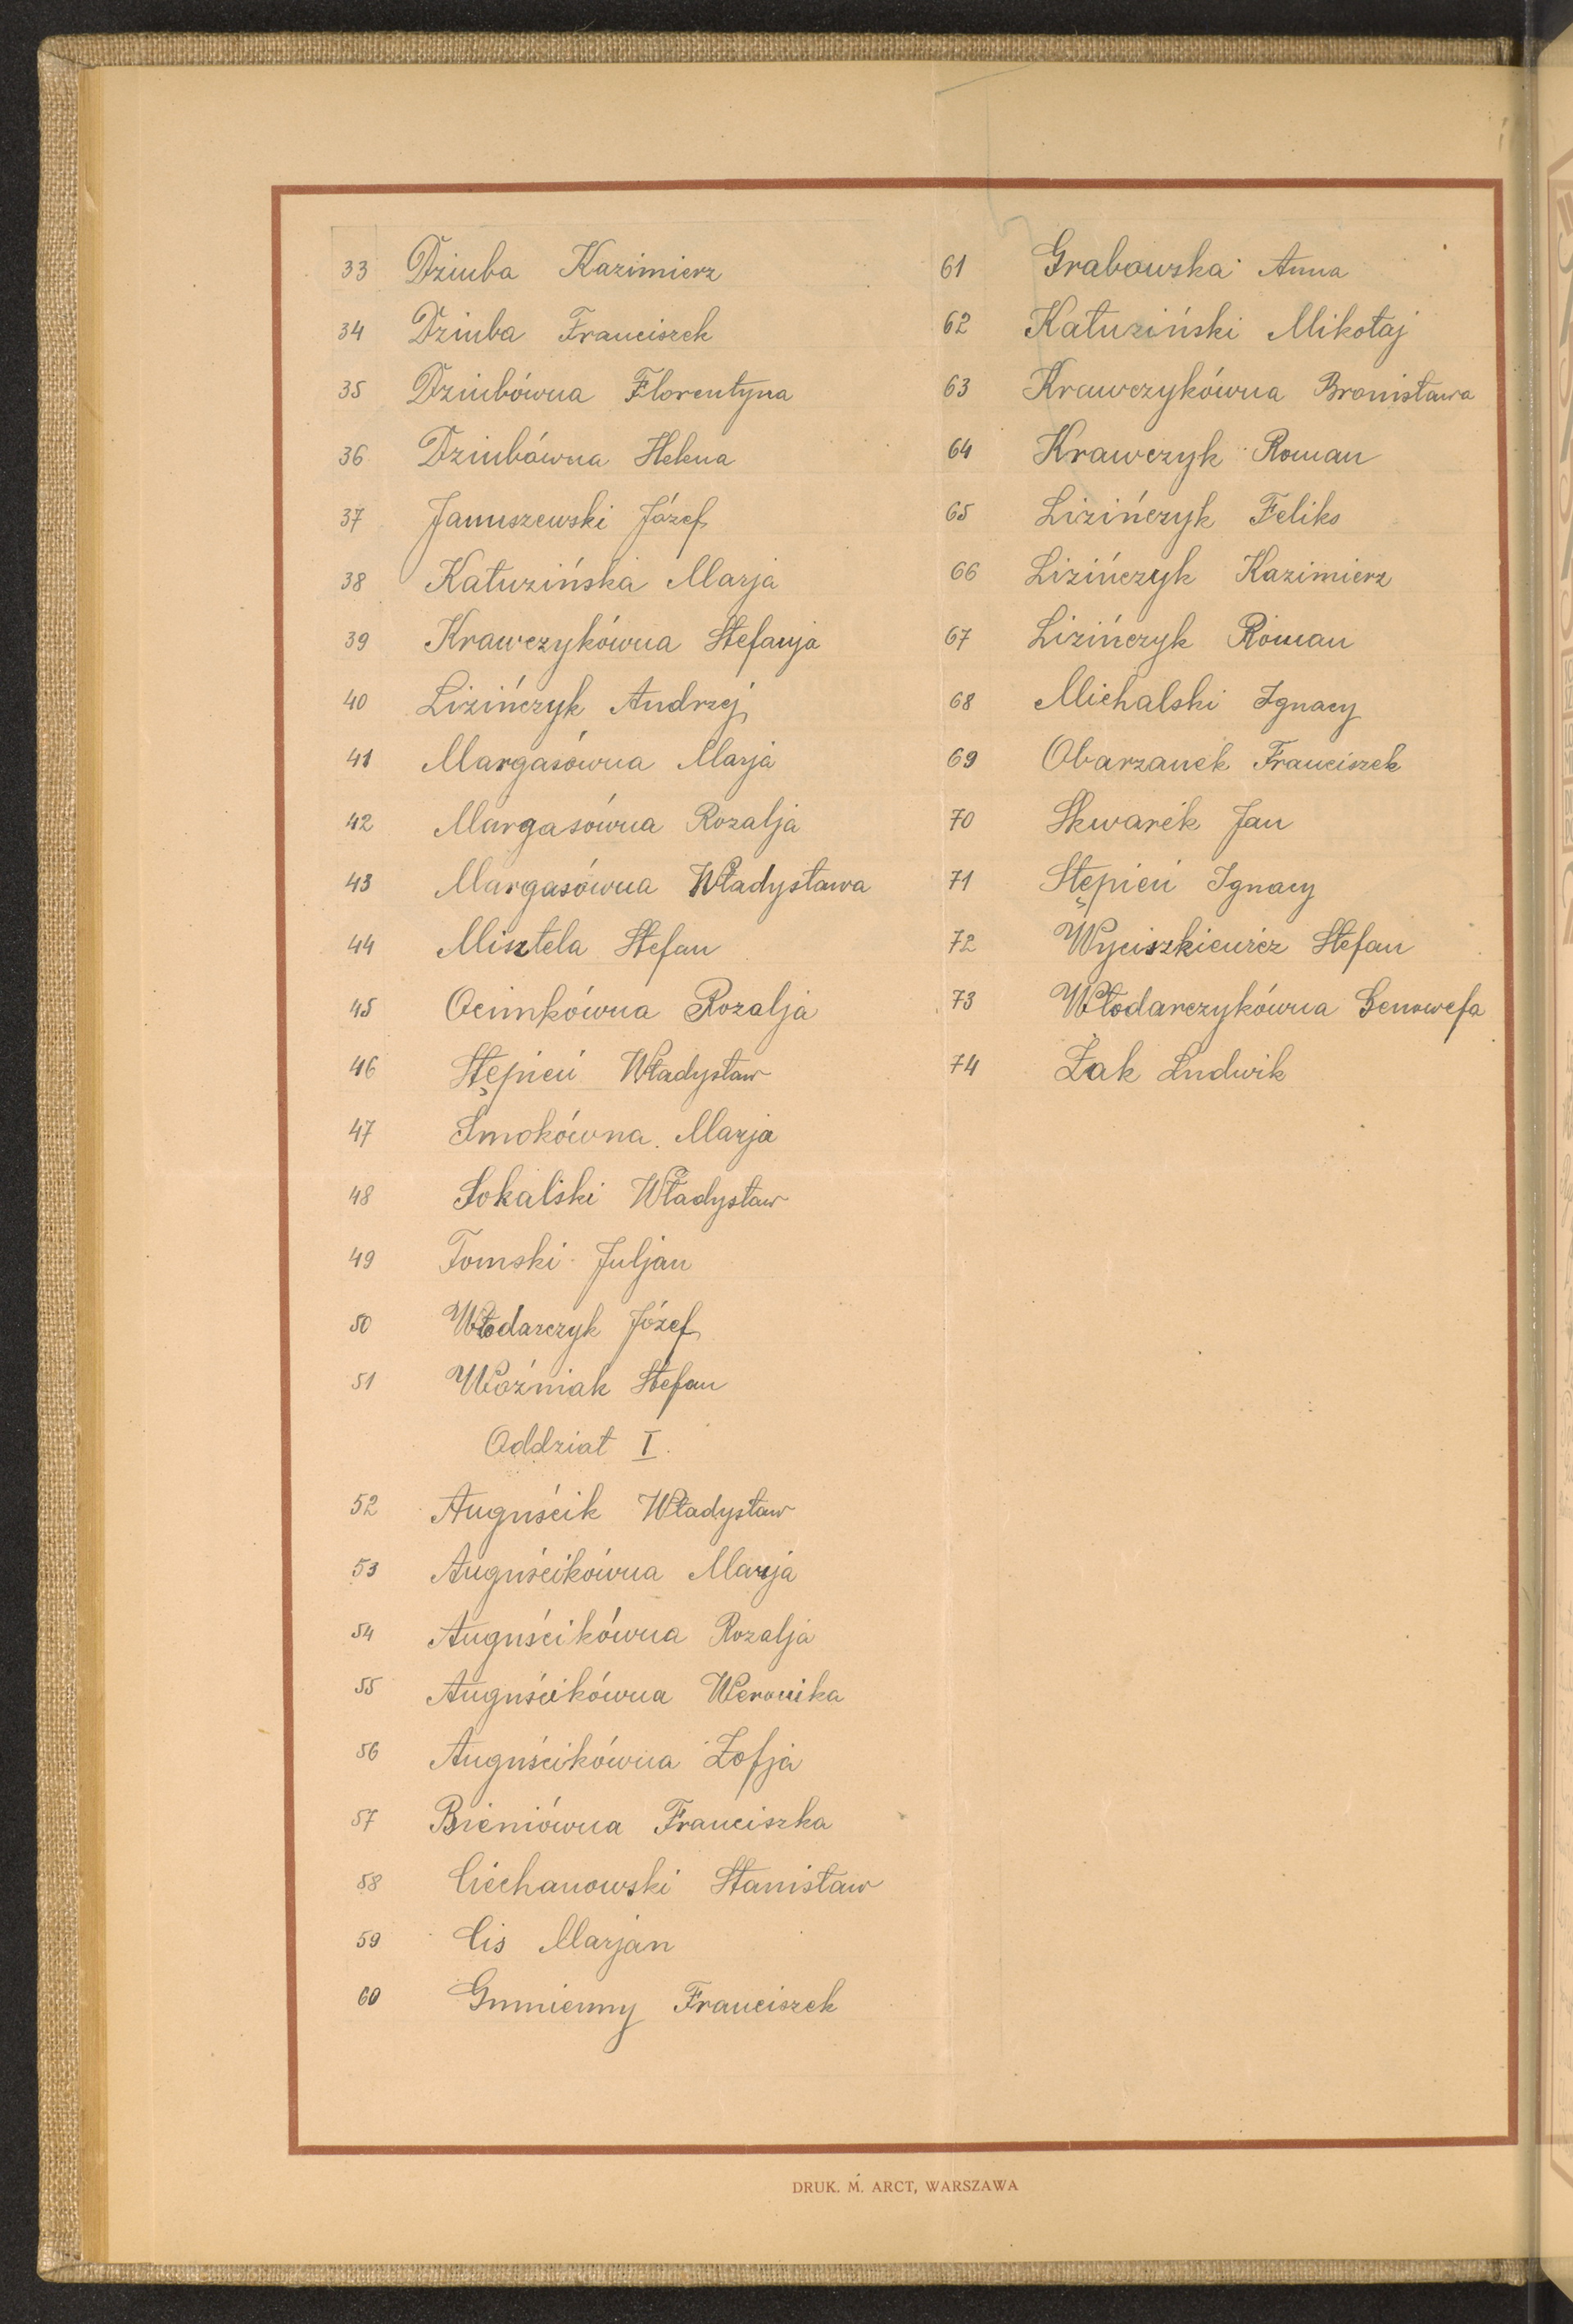 33 Dziuba Kazimierz
34 Dziuba Franciszek
35 Dziubówna Florentyna
36 Dziubówna Helena
37 Januszewski Józef
38 Kałuzińska Marja
39 Krawczykówna Stefanja
40 Lizińczyk Andrzej
41 Margasówna Marja
42 Margasówna Rozalja
43 Margasówna Władysława
44 Misztela Stefan
45 Ocimkówna Rozalja
46 Stępień Władysław
47 Smokówna Marja
48 Sokalski Władysław
49 Tomski Juljan
50 Włodarczyk Józef
51 Woźniak Stefan
Oddział I.
52 Auguścik Władysław
53 Auguścikówna Marja
54 Auguścikówna Rozalja
55 Auguścikówna Weronika
56 Auguścikówna Zofja
57 Bieniówna Franciszka
58 Ciechanowski Stanisław
59 Cis Marjan
60 Gumienny Franciszek
61 Grabowska Anna
62 Kałuziński Mikołaj
63 Krawczykówna Bronisława
64 Krawczyk Roman
65 Lizińczyk Feliks
66 Lizińczyk Kazimierz
67 Lizińczyk Roman
68 Michalski Ignacy
69 Obarzanek Franciszek
70 Skwarek Jan
71 Stępień Ignacy
72 Wyciszkiewicz Stefan
73 Włodarczykówna Genowefa
74 Żak Ludwik
DRUK. M. ARCT, WARSZAWA